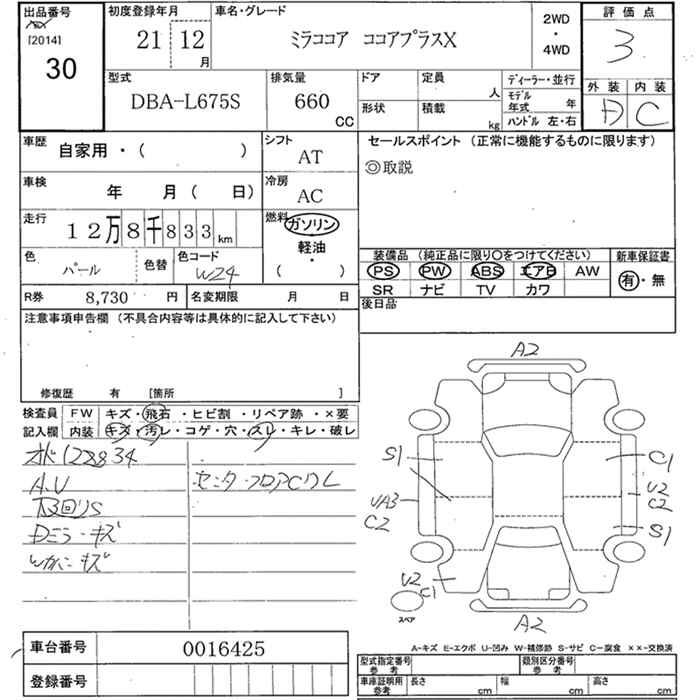 出品番号
[2014]
30
初度登録年月
21 12 月
車名・グレード
ミラココア ココアプラスX
2WD
・
4WD
評価点
3
外装 内装
D C
型式
DBA-L675S
排気量
660 CC
ドア
形状
定員 人
積載 kg
ディーラー・並行
モデル年式 年
ハンドル 左・右
車歴
自家用・( )
シフト
AT
車検
年 月 ( 日)
冷房
AC
走行
12万8千833 km
燃料
ガソリン
軽油
・
( )
色
パール
色替
色コード
W24
R券 8,730 円
名変期限 月 日
セールスポイント (正常に機能するものに限ります)
◎取説
装備品 (純正品に限り〇をつけてください)
PS PW ABS エアB AW
SR ナビ TV カワ
新車保証書
有・無
後日品
注意事項申告欄 (不具合内容等は具体的に記入して下さい)
修復歴 有 [箇所 ]
検査員
記入欄
FW キズ・飛石・ヒビ割・リペア跡・×要
内装 キズ・汚レ・コゲ・穴・スレ・キレ・破レ
128834
A.U
下回りS
Dミラーキズ
センターフロアCワレ
A2
S1
C1
U2
C2
UA3
C2
S1
U2
C1
スペア
A2
A-キズ E-エクボ U-凹み W-補修跡 S-サビ C-腐食 ××-交換済
車台番号 0016425
登録番号
型式指定番号
参考
類別区分番号
参考
車庫証明用
参考
長さ cm
幅 cm
高さ cm